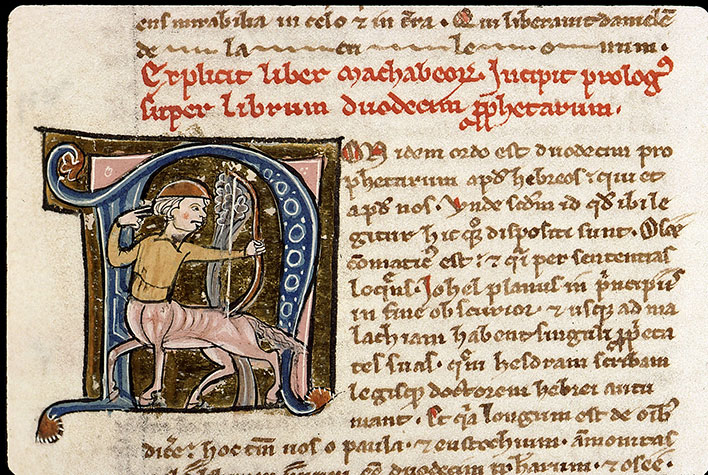 ens mirabilia in celo ⁊ in terra. Qui liberauit danielem
de la cu le o num.
Explicit liber machabeorꝝ. Incipit prologꝰ
super librum duodecim ꝓphetarum.
NON idem ordo est duodecim pro
phetarum apd hebreos ⁊ qui et
apd nos. Vnde scdm id qd ibi le
gitur hic qꝫ dispositi sunt. Osee
comatic̄ est ⁊ q̄i per sententias
loqns. Iohel planus in pͥncipiis
in fine obscurior. ⁊ usqꝫ ad ma
lachiam habent singuli ꝓp̄eta
tes suas. qm hesdram scribam
legisqꝫ doctorem hebrei autu
mant. Et qͥa longum est de oībꝰ
dice
 hoc tm̄ uos o paula. ⁊ eustochium. āmonitas
duodecim ꝓp̄harum. ⁊ osee.